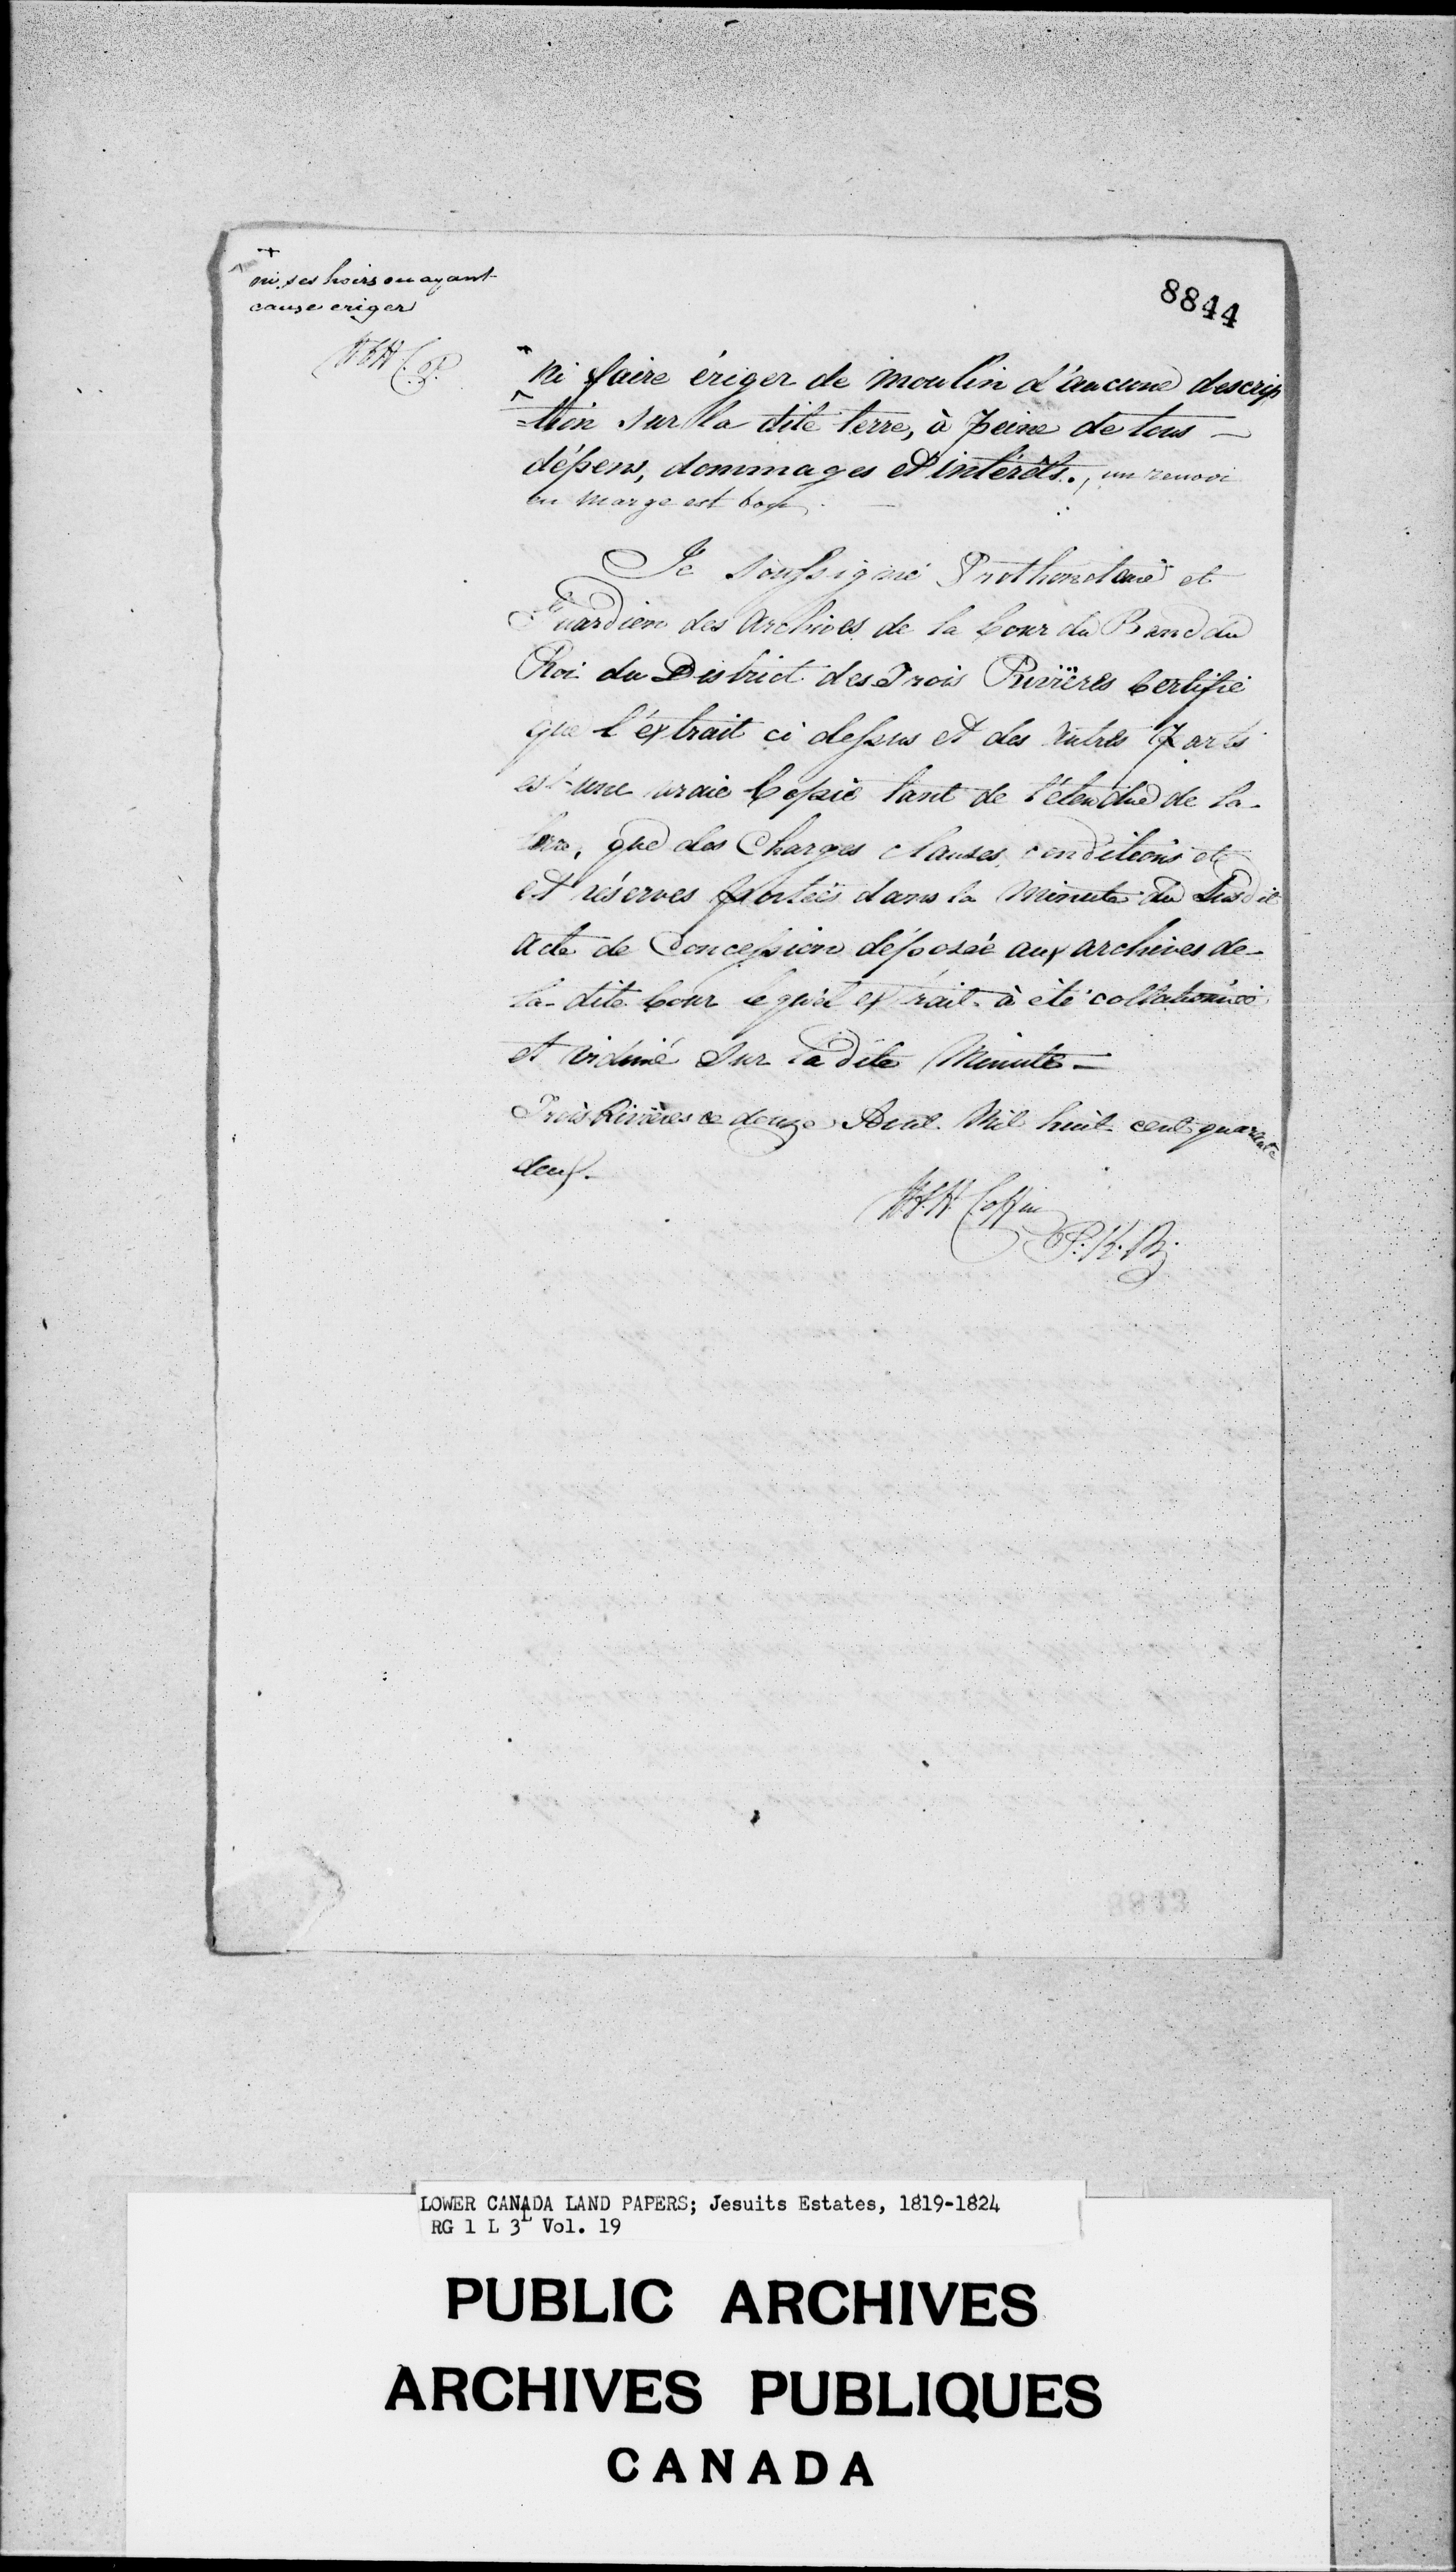 8844
ni ses hoirs ou ayant
cause eriger
WHC P.
ni faire ériger de moulin d'aucune descrip
=tion sur la dite terre, à peine de tous
dépens, dommages et intérêts., un renvoi
en marge est bon.
Je soussigné Prothonotaire et
Guardien des archives de la Cour du Banc du
Roi du District des Trois Rivières Certifie
que l'extrait ci dessus et des autres parts
est une vraie Copie tant de l'étendue de la
terre, que des Charges clauses conditions et
et réserves portées dans la Minute du Susdit
acte de Concession déposée aux archives de
la dite Cour lequel extrait à été collationné
et vidimé sur la dite Minute —
Trois Rivières ce douze Aout Mil huit cent quarante
deux.
Coffin
P.K.B.
LOWER CANADA LAND PAPERS; Jesuits Estates, 1819-1824
RG 1 L 3L Vol. 19
PUBLIC ARCHIVES
ARCHIVES PUBLIQUES
CANADA